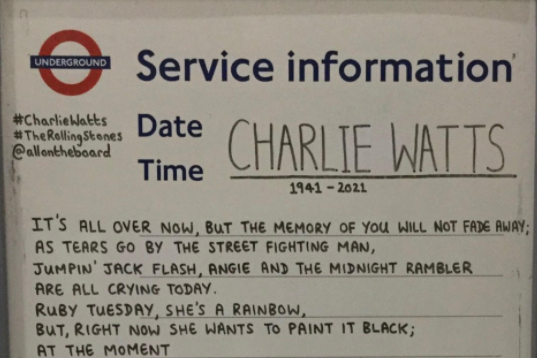 UNDERGROUND
Service information
#CharlieWatts
#TheRollingStones
@allontheboard
Date
Time
CHARLIE WATTS
1941 - 2021
IT'S ALL OVER NOW, BUT THE MEMORY OF YOU WILL NOT FADE AWAY;
AS TEARS GO BY THE STREET FIGHTING MAN,
JUMPIN' JACK FLASH, ANGIE AND THE MIDNIGHT RAMBLER
ARE ALL CRYING TODAY.
RUBY TUESDAY, SHE'S A RAINBOW,
BUT, RIGHT NOW SHE WANTS TO PAINT IT BLACK;
AT THE MOMENT